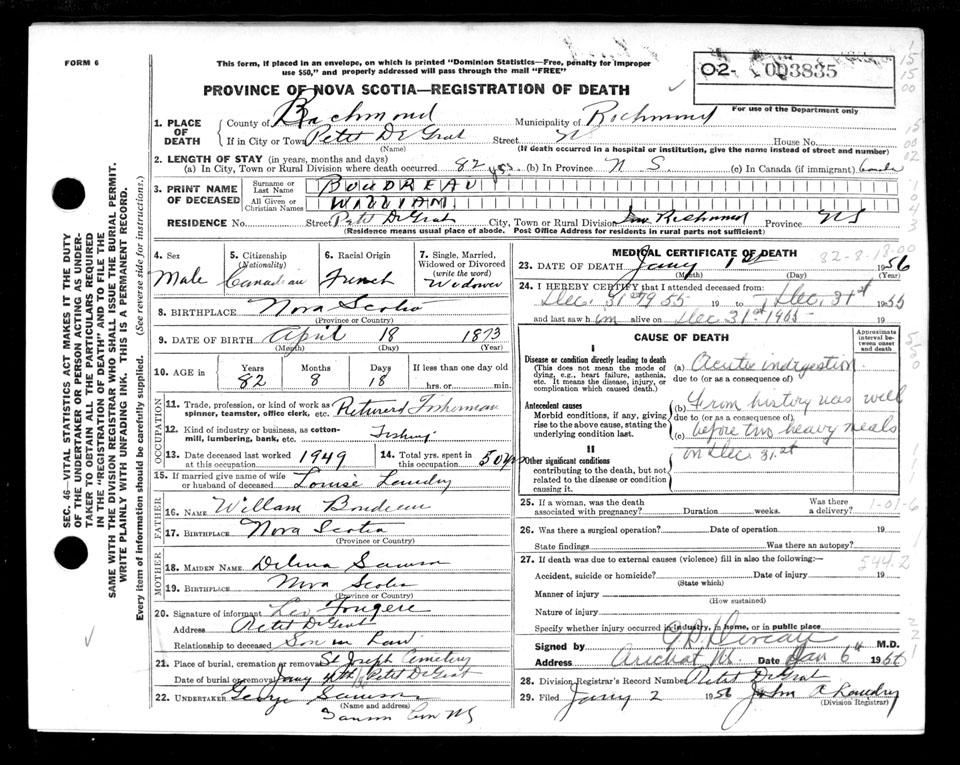 FORM 6
This form, if placed in an envelope, on which is printed "Dominion Statistics—Free, penalty for improper
use $50," and properly addressed will pass through the mail "FREE"
02- 003835
For use of the Department only
PROVINCE OF NOVA SCOTIA—REGISTRATION OF DEATH
1. PLACE OF DEATH
County of Richmond Municipality of Richmond
If in City or Town Petit De Grat Street House No.
(Name) (If death occurred in a hospital or institution, give the name instead of street and number)
2. LENGTH OF STAY (in years, months and days)
(a) In City, Town or Rural Division where death occurred 82 yrs. (b) In Province N S. (c) In Canada (if immigrant)
3. PRINT NAME OF DECEASED
Surname or Last Name BOUDREAU
All Given or Christian Names WILLIAM
RESIDENCE No. Street Petit De Grat City, Town or Rural Division Richmond Province NS
(Residence means usual place of abode. Post Office Address for residents in rural parts not sufficient)
4. Sex Male
5. Citizenship (Nationality) Canadian
6. Racial Origin French
7. Single, Married, Widowed or Divorced (write the word) Widower
8. BIRTHPLACE Nova Scotia
(Province or Country)
9. DATE OF BIRTH April 18 1873
(Month) (Day) (Year)
10. AGE IN Years 82 Months 8 Days 18 If less than one day old hrs. or min.
OCCUPATION
11. Trade, profession, or kind of work as spinner, teamster, office clerk, etc. Retired Fisherman
12. Kind of industry or business, as cotton-mill, lumbering, bank, etc. Fishing
13. Date deceased last worked at this occupation 1949 14. Total yrs. spent in this occupation 50 yrs
15. If married give name of wife or husband of deceased Louise Landry
FATHER
16. NAME William Boudreau
17. BIRTHPLACE Nova Scotia
(Province or Country)
MOTHER
18. MAIDEN NAME Delina Samson
19. BIRTHPLACE Nova Scotia
(Province or Country)
20. Signature of informant Leo Fougere
Address Petit De Grat
Relationship to deceased Son in Law
21. Place of burial, cremation or removal St Joseph Cemetery
Date of burial or removal Jany 4th Petit De Grat
22. UNDERTAKER George Samson
(Name and address)
Samson Cove NS
MEDICAL CERTIFICATE OF DEATH
23. DATE OF DEATH Jany 1st 1956
(Month) (Day)
82-8-18.00
24. I HEREBY CERTIFY that I attended deceased from:
Dec. 31st 1955 19 to Dec. 31st 1955
and last saw him alive on Dec 31st 1955
CAUSE OF DEATH
Approximate interval between onset and death
I
Disease or condition directly leading to death
(This does not mean the mode of dying, e.g., heart failure, asthenia, etc. It means the disease, injury, or complication which caused death.)
(a) Acute indigestion
due to (or as a consequence of)
Antecedent causes
Morbid conditions, if any, giving rise to the above cause, stating the underlying condition last.
(b) From history was well
due to (or as a consequence of)
(c) before two heavy meals
on Dec. 31st
II
Other significant conditions
contributing to the death, but not related to the disease or condition causing it.
25. If a woman, was the death associated with pregnancy? Duration weeks. Was there a delivery?
1-01-6
26. Was there a surgical operation? Date of operation 19
State findings Was there an autopsy?
27. If death was due to external causes (violence) fill in also the following:—
544.2
Accident, suicide or homicide? Date of injury 19
(State which)
Manner of injury
(How sustained)
Nature of injury
Specify whether injury occurred in industry, in home, or in public place
Signed by M.D.
Address Arichat NS Date Jan 6th 1956
28. Division Registrar's Record Number Petit De Grat
29. Filed Jany 2 1956 John A Landry
(Division Registrar)
SEC. 46—VITAL STATISTICS ACT MAKES IT THE DUTY
OF THE UNDERTAKER OR PERSON ACTING AS UNDER-
TAKER TO OBTAIN ALL THE PARTICULARS REQUIRED
IN THE "REGISTRATION OF DEATH" AND TO FILE THE
SAME WITH THE DIVISION REGISTRAR WHO SHALL ISSUE THE BURIAL PERMIT.
WRITE PLAINLY WITH UNFADING INK. THIS IS A PERMANENT RECORD.
Every item of information should be carefully supplied. (See reverse side for instructions.)